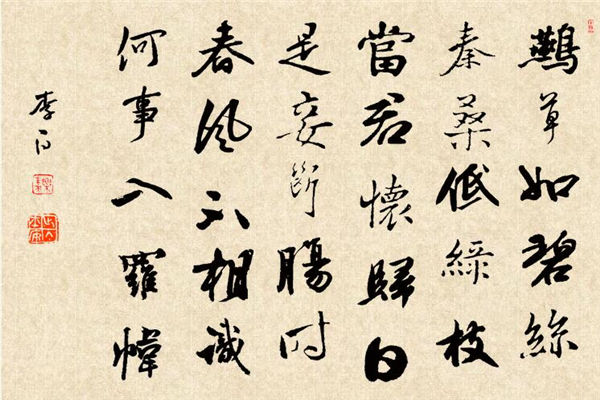 鷰草如碧絲
秦桑低綠枝
當君懷歸日
是妾斷腸時
春風不相識
何事入羅幃
李白